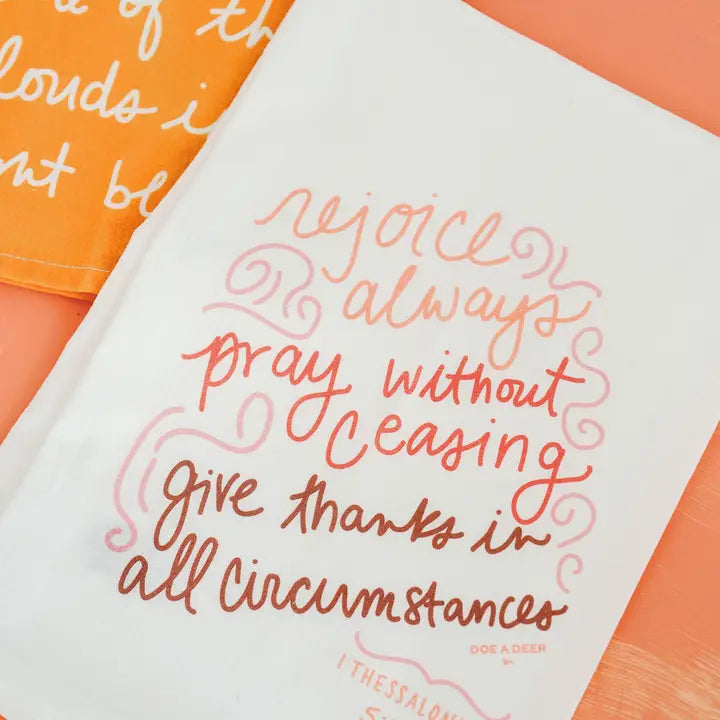 of th
louds i
nt be
rejoice
always
pray without
ceasing
give thanks in
all circumstances
DOE A DEER
1 THESSALON